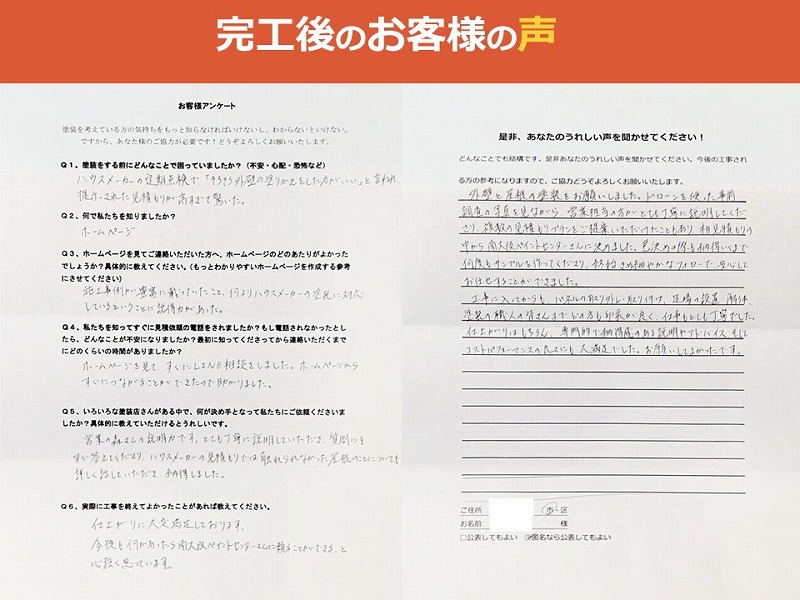 完工後のお客様の声
お客様アンケート
塗装を考えている方の気持ちをもっと知らなければいけないし、わからないといけない。
ですから、あなた様のご協力が必要です！どうぞよろしくお願いいたします。
Q１、塗装をする前にどんなことで困っていましたか？（不安・心配・恐怖など）
ハウスメーカーの定期点検で、「そろそろ外壁の塗りかえをした方がいい」と言われ、
提示された見積もりが高すぎて驚いた。
Q２、何で私たちを知りましたか？
ホームページ
Q３、ホームページを見てご連絡いただいた方へ、ホームページのどのあたりがよかった
でしょうか？具体的に教えてください。（もっとわかりやすいホームページを作成する参考
にさせてください）
施工事例が豊富に載っていたこと、何よりハウスメーカーの塗装に対応
しているということに説得力があった。
Q４、私たちを知ってすぐに見積依頼の電話をされましたか？もし電話されなかったとし
たら、どんなことが不安になりましたか？最初に知ってくださってから連絡いただくまで
にどのくらいの時間がありましたか？
ホームページを見て、すぐにLINE相談をしました。ホームページから
すぐにつながることができたので助かりました。
Q５、いろいろな塗装店さんがある中で、何が決め手となって私たちにご依頼くださいま
したか？具体的に教えていただけるとうれしいです。
営業の森さんの説明力です。とても丁寧に説明していただき、質問にも
すぐ答えてくださり、ハウスメーカーの見積もりでは触れられなかった屋根のことについても
詳しく話していただき、納得しました。
Q６、実際に工事を終えてよかったことがあれば教えてください。
仕上がりに大変満足しております。
今後も何かあったら南大阪ペイントセンターさんに頼ることができる、と
心強く思っています。
是非、あなたのうれしい声を聞かせてください！
どんなことでも結構です。是非あなたのうれしい声を聞かせてください。今後の工事され
る方の参考になりますので、ご協力どうぞよろしくお願いいたします。
外壁と屋根の塗装をお願いしました。ドローンを使った事前
調査の写真を見ながら、営業担当の方がとても丁寧に説明してくだ
さり、複数の見積もりプランをご提案いただけたこともあり、相見積もりの
中から南大阪ペイントセンターさんに決めました。色決めの際も納得いくまで
何度もサンプルを作ってくださり、終始きめ細やかなフォローで、安心して
お任せすることができました。
工事に入ってからも、パネルの取り外し・取り付け、足場の設置・解体、
塗装の職人の皆さんまでどの方も印象が良く、仕事もとても丁寧でした。
仕上がりはもちろん、専門的で納得感のある説明やアドバイス、そして
コストパフォーマンスの良さにも大満足でした。お願いしてよかったです。
ご住所 市・区
お名前 様
□公表してもよい ☑匿名なら公表してもよい